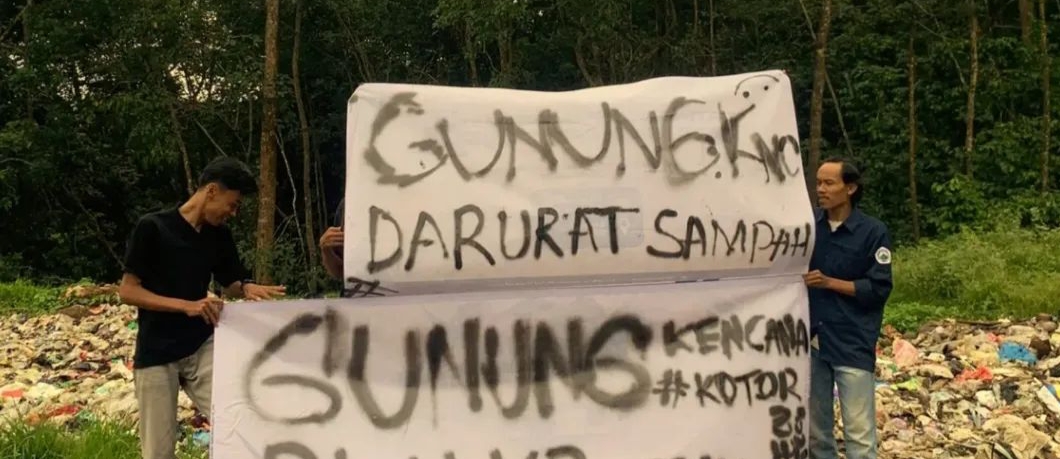 GUNUNG.KNC
DARURAT SAMPAH
#
GUNUNG
KENCANA
#KOTOR